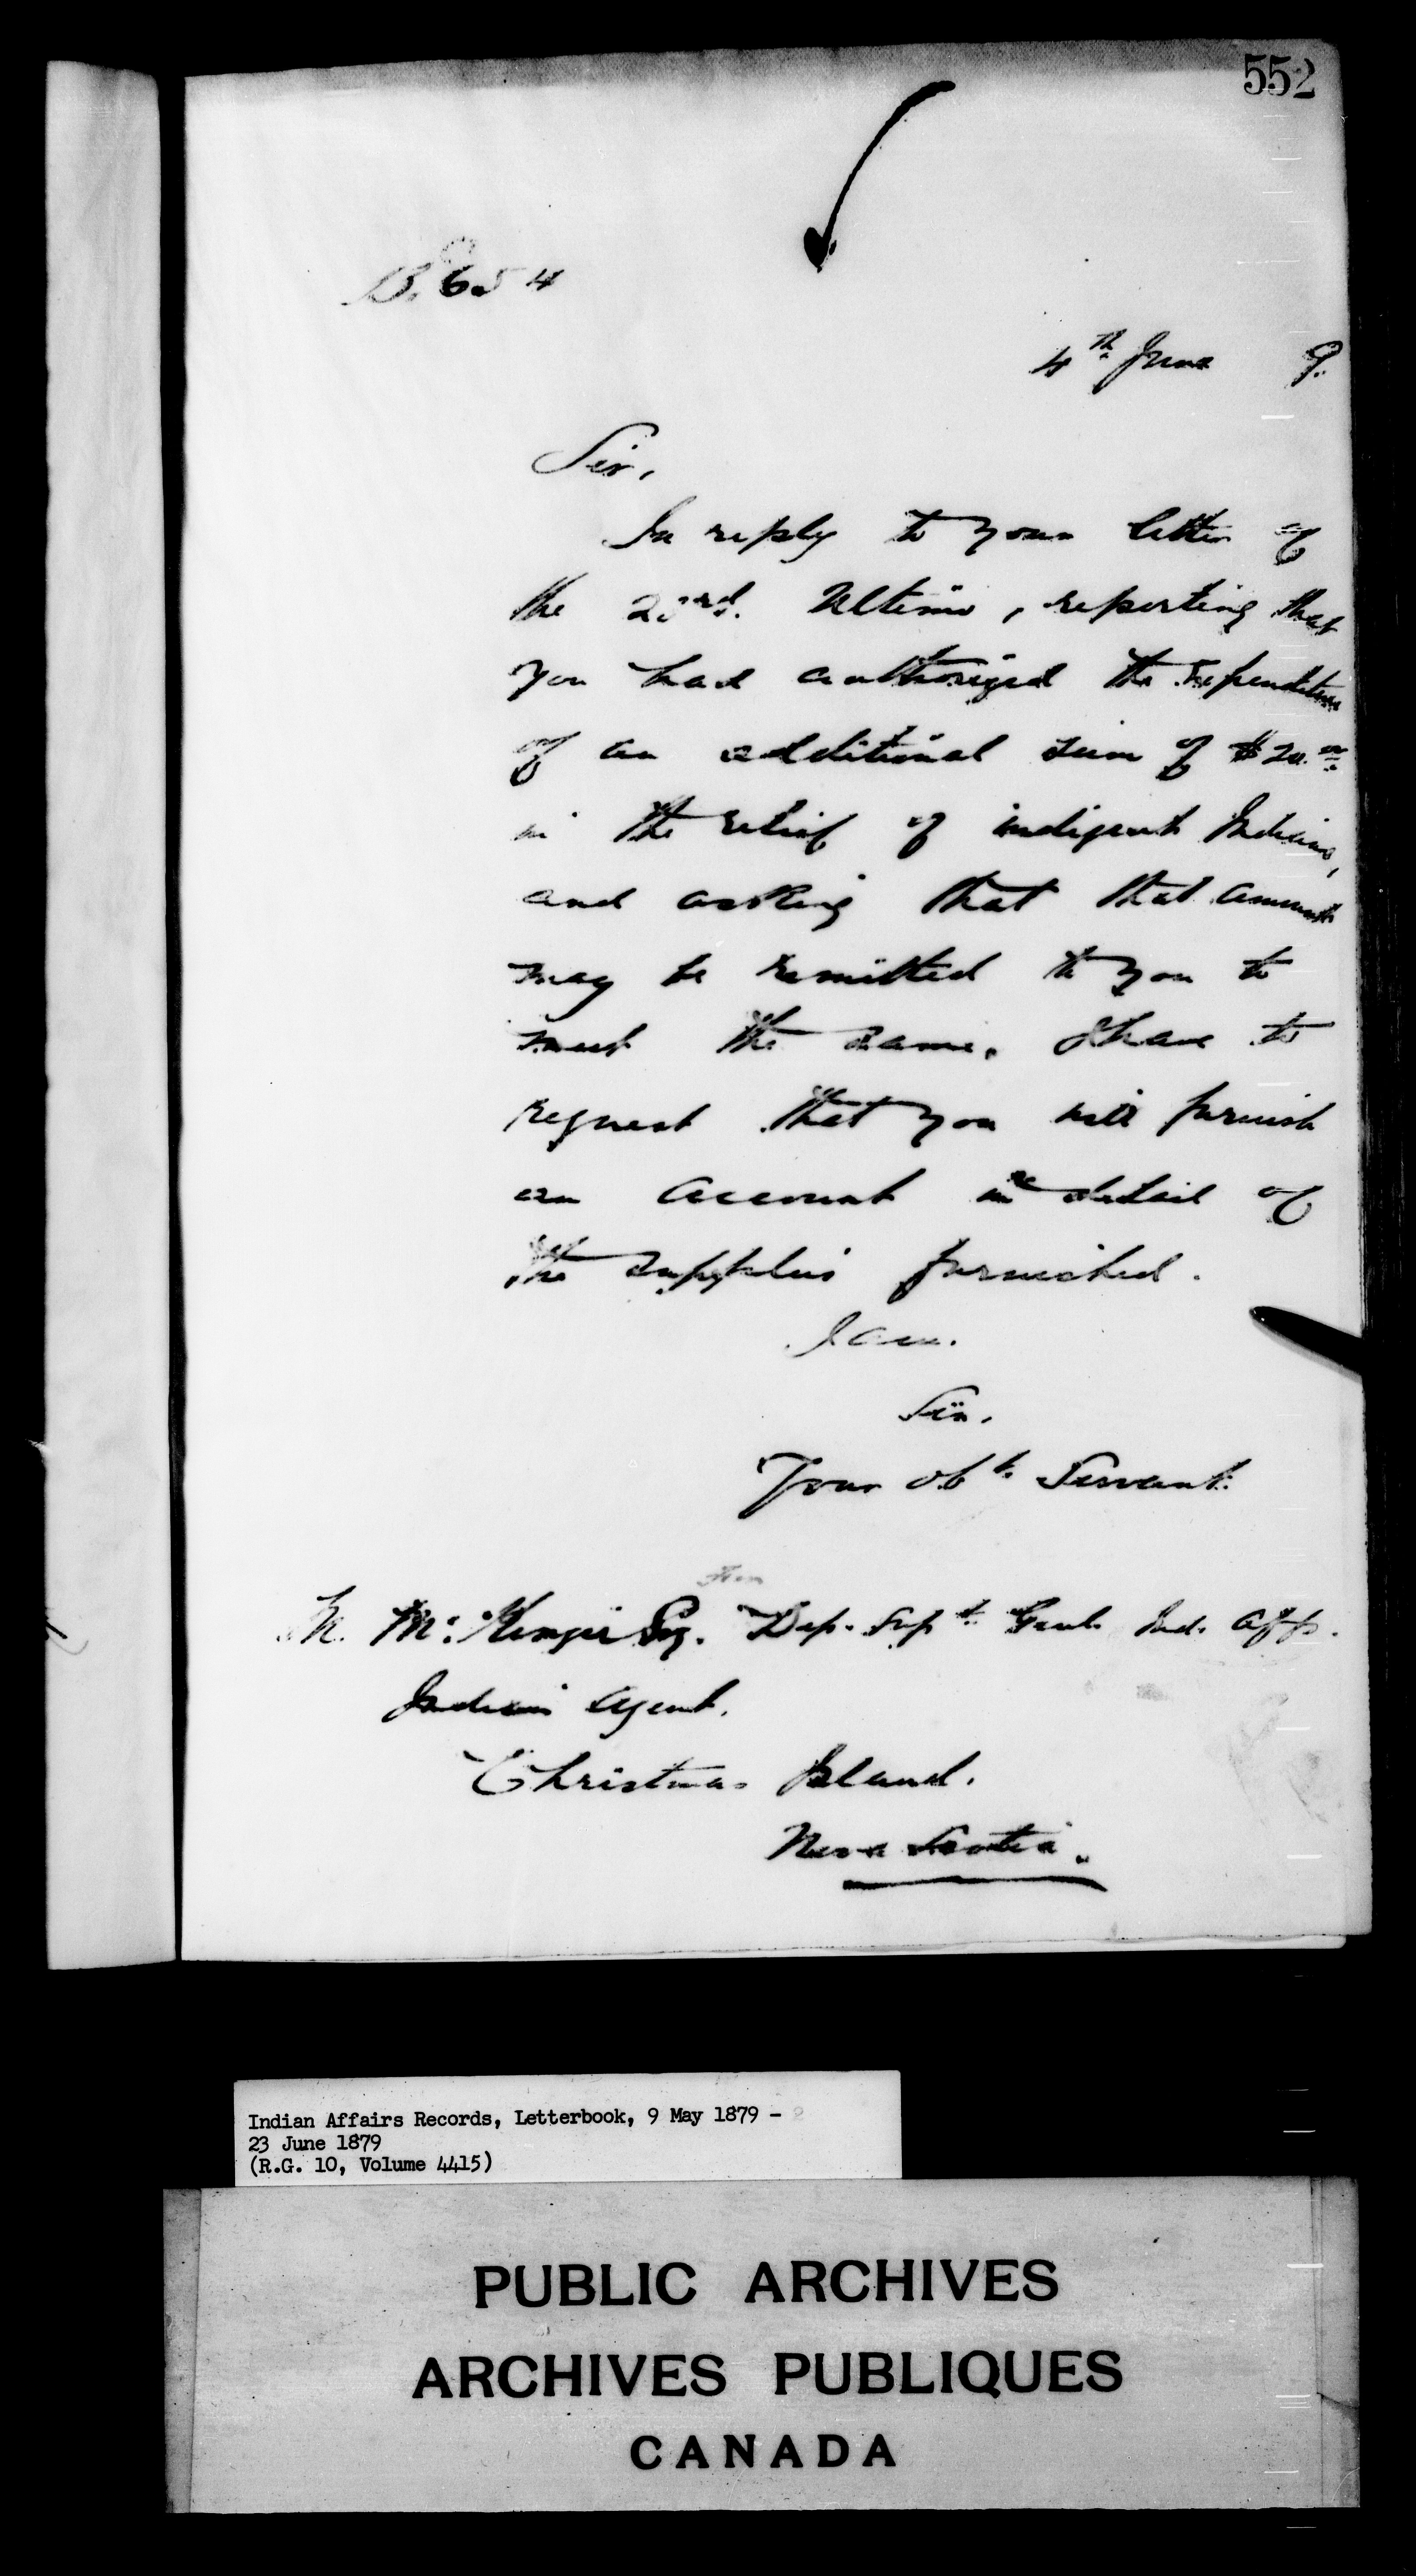 552
B. 654
4th June 9.
Sir,
In reply to your letter of
the 23rd. Ultimo, reporting that
you had authorized the expenditure
of an additional sum of $20.00
in the relief of indigent Indians,
and asking that that amount
may be remitted to you to
meet the same, I have to
request that you will furnish
an account in detail of
the supplies furnished.
I am.
Sir,
Your obt. Servant.
M. McKenzie Esq. Dep. Supt. Genl. Ind. Affs.
Indian Agent,
Christmas Island.
Nova Scotia.
Indian Affairs Records, Letterbook, 9 May 1879 -
23 June 1879
(R.G. 10, Volume 4415)
PUBLIC ARCHIVES
ARCHIVES PUBLIQUES
CANADA